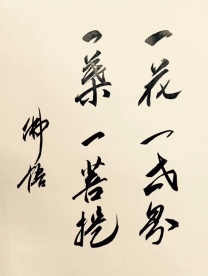 一花一世界
一葉一菩提
御悟